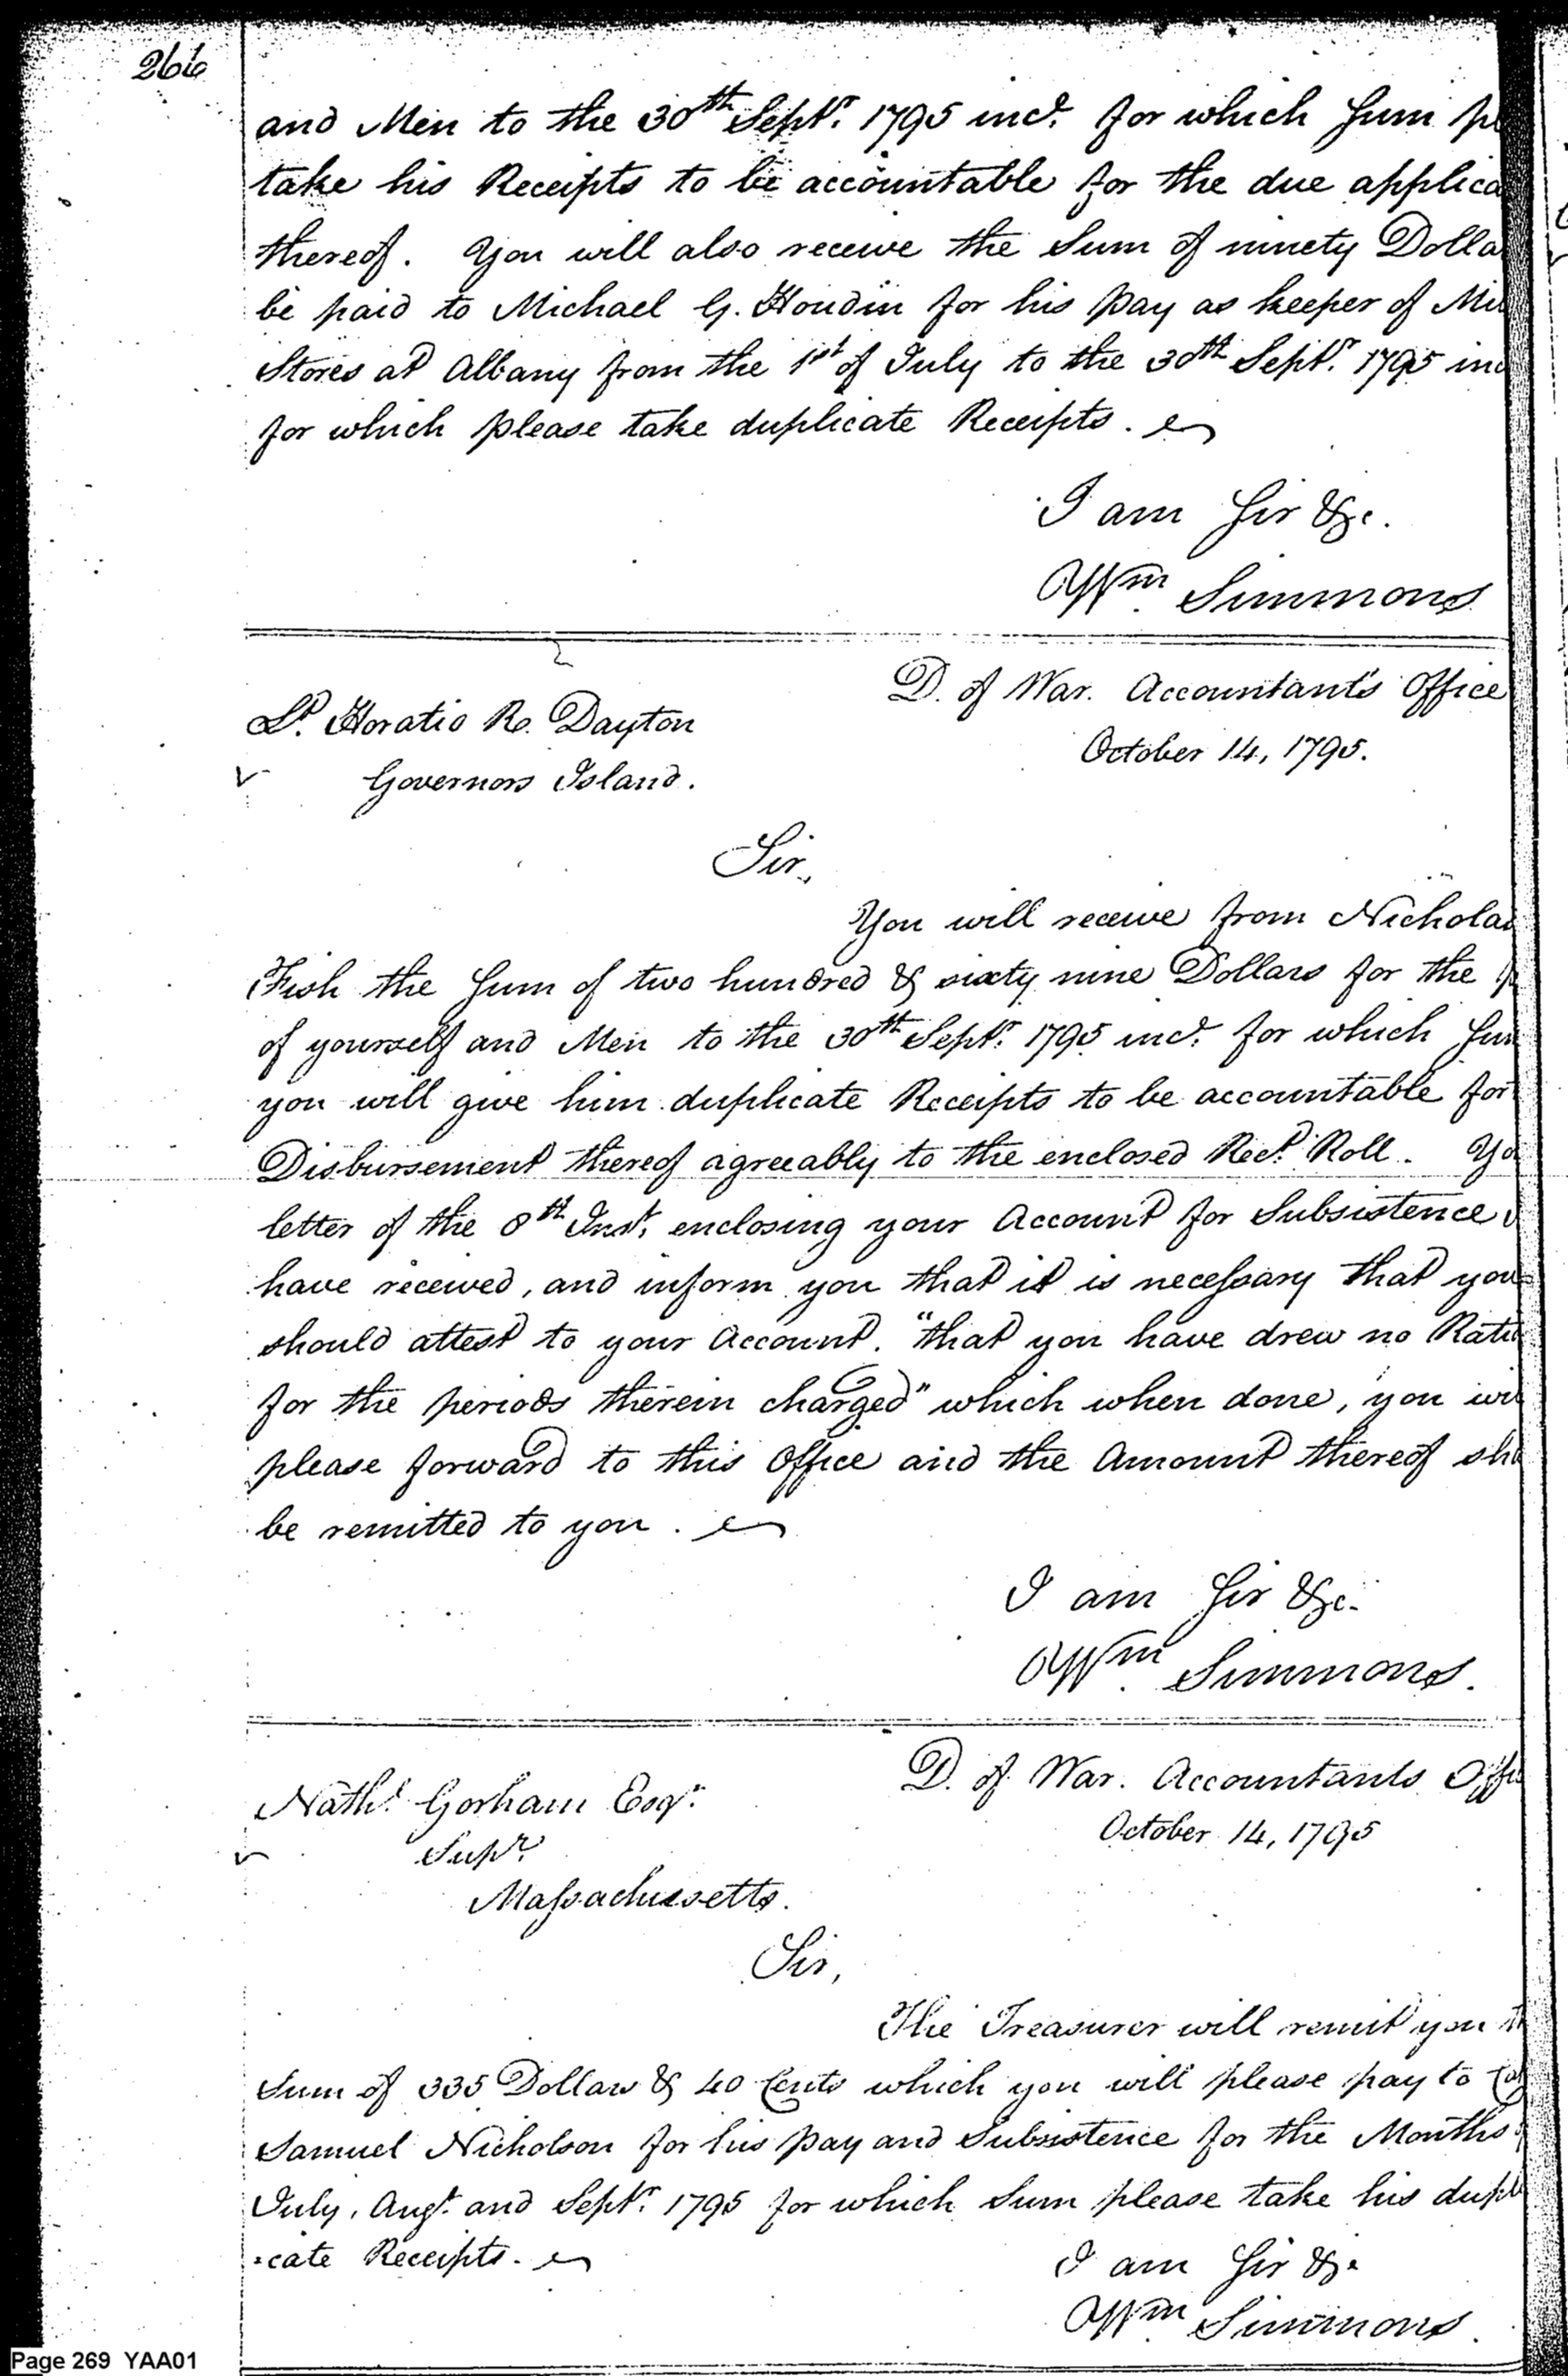 266
and Men to the 30th Septr. 1795 incl. for which Sum
take his Receipts to be accountable for the due applica
thereof. You will also receive the Sum of ninety Dolla
be paid to Michael G. Houdin for his pay as keeper of Mil
Stores at Albany from the 1st of July to the 30th Septr. 1795 inc
for which please take duplicate Receipts.
I am Sir &c.
Wm. Simmons
D. of War. Accountant's Office
Lt. Horatio R. Dayton
October 14, 1795.
Governors Island.
Sir,
You will receive from Nicholas
Fish the Sum of two hundred & sixty nine Dollars for the p
of yourself and Men to the 30th Septr. 1795 incl. for which Sum
you will give him duplicate Receipts to be accountable for
Disbursement thereof agreeably to the enclosed Rect. Roll. Yo
letter of the 8th Inst. enclosing your Account for Subsistence
have received, and inform you that it is necessary that you
should attest to your Account. "that you have drew no Rati
for the periods therein charged" which when done, you wi
please forward to this Office and the Amount thereof sh
be remitted to you.
I am Sir &c.
Wm. Simmons.
D. of War. Accountants Offi
Nathl. Gorham Esqr.
October 14, 1795
Supr.
Massachussetts.
Sir,
The Treasurer will remit you th
Sum of 335 Dollars & 40 Cents which you will please pay to
Samuel Nicholson for his pay and Subsistence for the Months
July, Augt. and Septr. 1795 for which Sum please take his dupl
-cate Receipts.
I am Sir &c
Wm. Simmons.
Page 269 YAA01